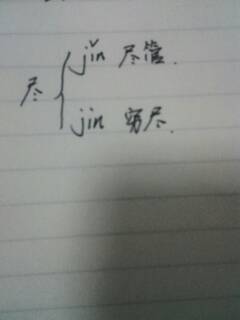 jǐn 尽管.
尽
jin 穷尽.